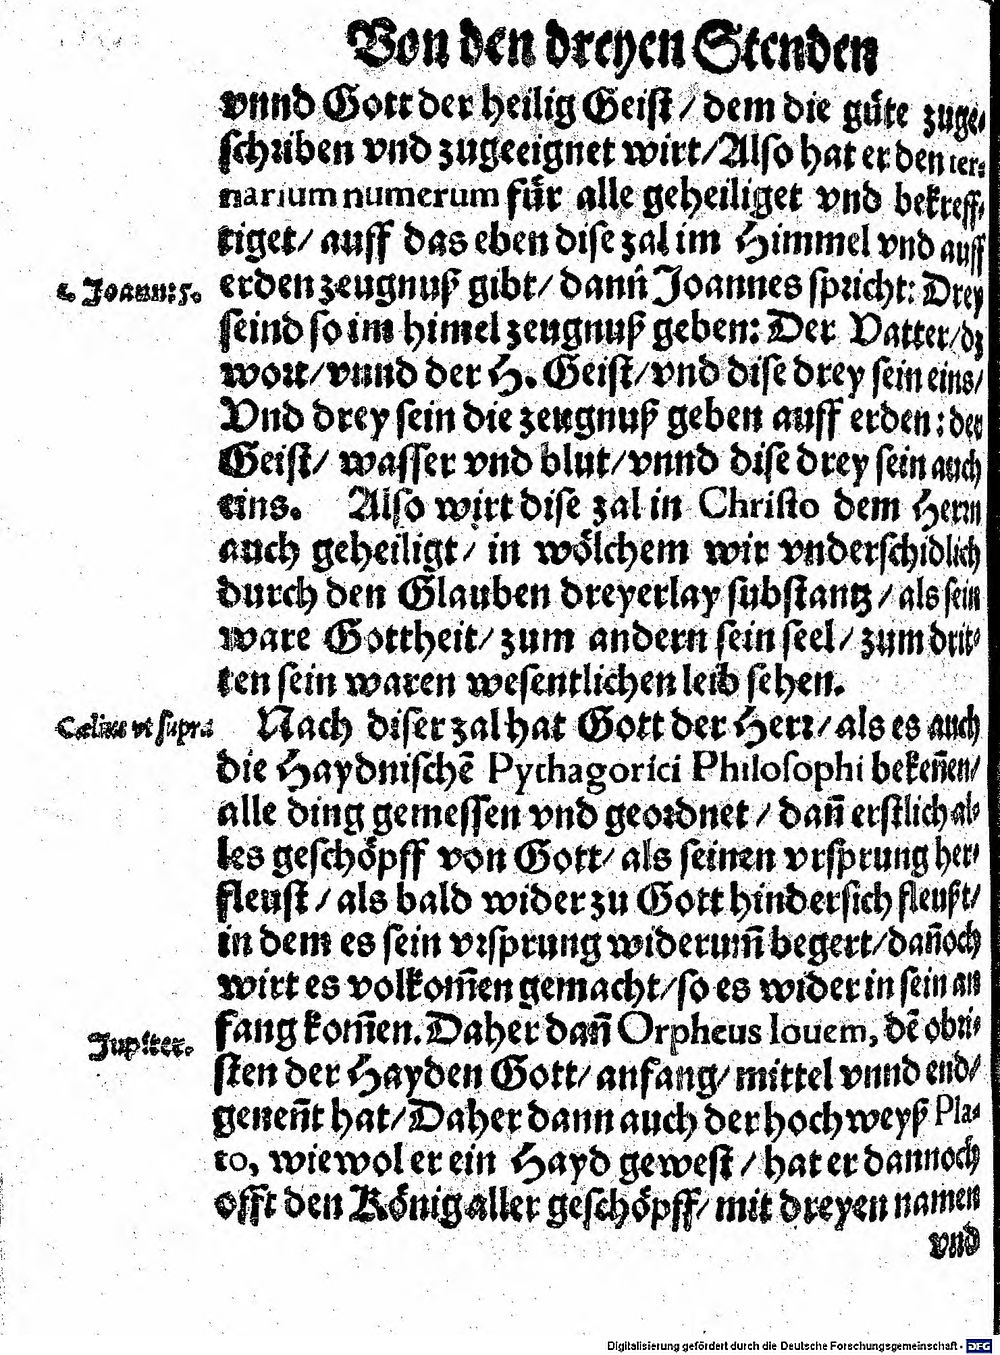 Von den dreyen Stenden
vnnd Gott der heilig Geist / dem die gůte zuge⸗
schriben vnd zugeeignet wirt/Also hat er den ter⸗
narium numerum für alle geheiliget vnd bekreff⸗
tiget/ auff das eben dise zal im Himmel vnd auff
1. Joannis 5.
erden zeugnuß gibt/ dann̄ Joannes spricht: Drey
seind so im himel zeugnuß geben: Der Vatter/dz
wort/vnnd der H. Geist/vnd dise drey sein eins/
Vnd drey sein die zeugnuß geben auff erden: der
Geist/ wasser vnd blut/vnnd dise drey sein auch
eins. Also wirt dise zal in Christo dem Herrn
auch geheiligt/ in wölchem wir vnderschidlich
durch den Glauben dreyerlay substantz / als sein
ware Gottheit/ zum andern sein seel/ zum drit⸗
ten sein waren wesentlichen leib sehen.
Cælius vt supra
Nach diser zal hat Gott der Herr/als es auch
die Haydnischē Pythagorici Philosophi bekeñen/
alle ding gemessen vnd geordnet / dañ erstlich al⸗
les geschöpff von Gott/ als seinen vrsprung her⸗
fleust / als bald wider zu Gott hindersich fleußt/
in dem es sein vrsprung widerum̄ begert/dañoch
wirt es volkom̄en gemacht/so es wider in sein an
fang kom̄en. Daher dañ Orpheus Iouem, dē obri⸗
Jupiter.
sten der Hayden Gott/ anfang/ mittel vnnd end/
geneñt hat/ Daher dann auch der hochweyß Pla⸗
to, wiewol er ein Hayd gewest / hat er dannoch
offt den König aller geschöpff/ mit dreyen namen
vnd
Digitalisierung gefördert durch die Deutsche Forschungsgemeinschaft - DFG